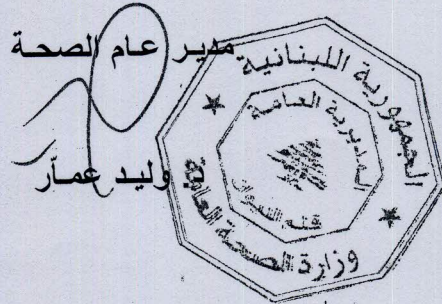 مدير عام الصحة
د. وليد عمّار
الجمهورية اللبنانية
وزارة الصحة العامة
المديرية العامة